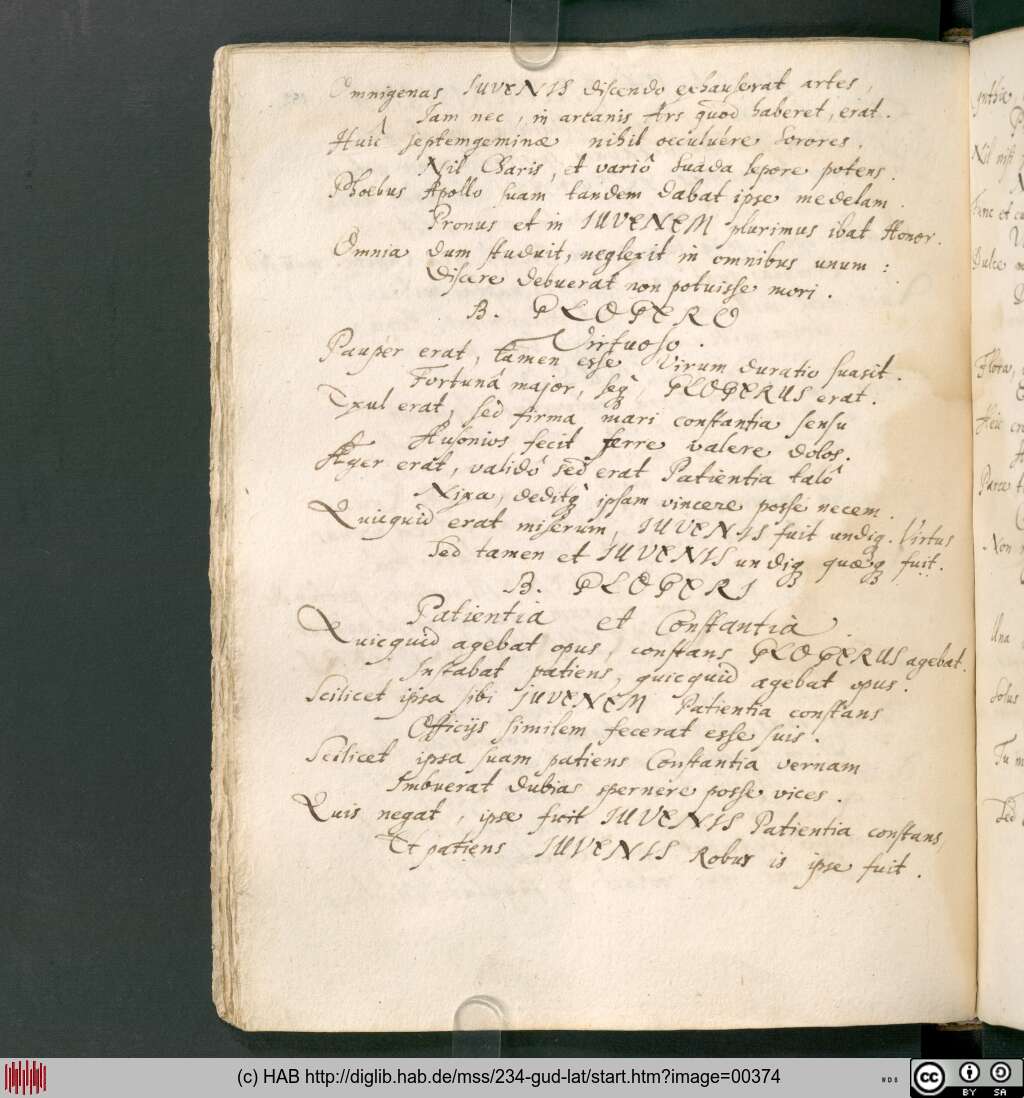 Omnigenas IUVENIS discendo exhauserat artes,
Jam nec, in arcanis Ars quod haberet, erat.
Huic septemgeminæ nihil occuluére Sorores.
Nil Charis, et variô Suada lepore potens.
Phoebus Apollo suam tandem dabat ipse medelam.
Pronus et in IUVENEM plurimus ibat Honor.
Omnia dum studuit, neglexit in omnibus unum:
Discere debuerat non potuisse mori.
B. PLOPERO
Virtuoso.
Pauper erat, tamen esse Virum duratio suasit.
Fortunâ major, seq PLOPERUS erat.
Exul erat, sed firma mari constantia sensu
Ausonios fecit ferre valere dolos.
Æger erat, validô sed erat Patientia talô
Nixa, deditq ipsam vincere posse necem.
Quicquid erat miserum, IUVENIS fuit undiq. Virtus
Sed tamen et IUVENIS undiq quæq fuit.
B. PLOPERI
Patientia et Constantia.
Quicquid agebat opus, constans PLOPERUS agebat.
Instabat patiens, quicquid agebat opus.
Scilicet ipsa sibi JUVENEM Patientia constans
Officijs similem fecerat esse suis.
Scilicet ipsa suam patiens Constantia vernam
Imbuerat dubias spernere posse vices.
Quis negat, ipse fuit IUVENIS Patientia constans,
Et patiens IUVENIS Robur is ipse fuit.
(c) HAB http://diglib.hab.de/mss/234-gud-lat/start.htm?image=00374
cc BY SA